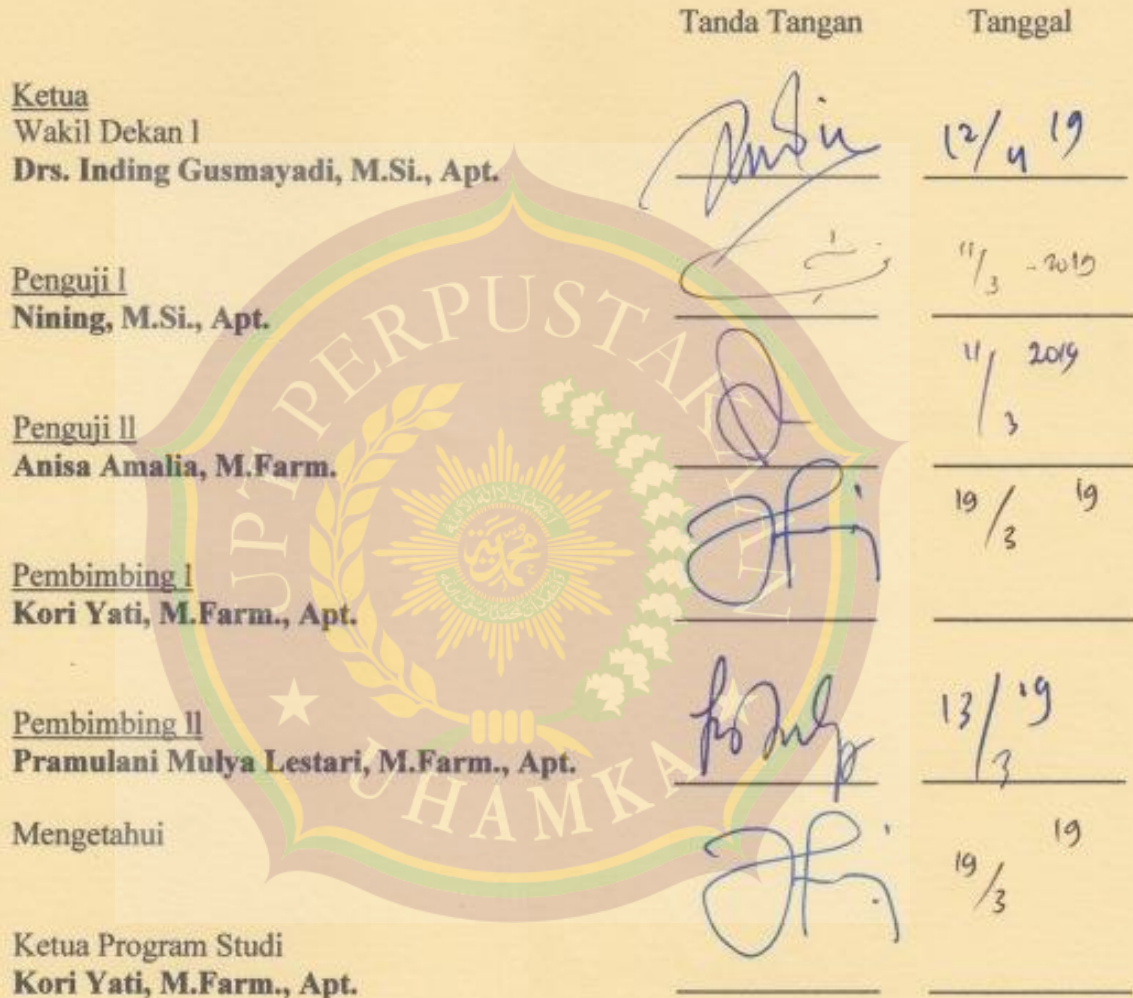 Tanda Tangan Tanggal
Ketua
Wakil Dekan I
Drs. Inding Gusmayadi, M.Si., Apt. 12/4 19
Penguji I 11/3 - 2019
Nining, M.Si., Apt.
11/3 2019
Penguji II
Anisa Amalia, M.Farm.
19/3 19
Pembimbing I
Kori Yati, M.Farm., Apt.
Pembimbing II 13/3 19
Pramulani Mulya Lestari, M.Farm., Apt.
Mengetahui
19/3 19
Ketua Program Studi
Kori Yati, M.Farm., Apt.
UPT PERPUSTAKAAN
UHAMKA